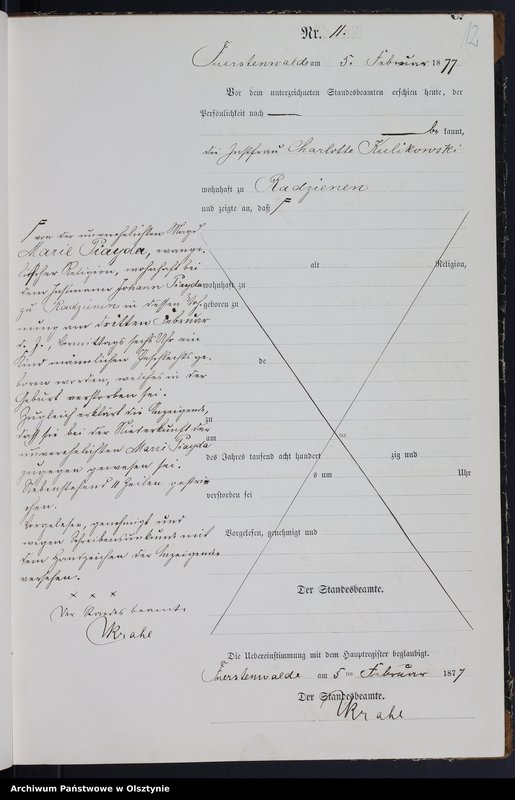 12
Nr. 11.
Fuerstenwalde am 5. Februar 1877
Vor dem unterzeichneten Standesbeamten erschien heute, der
Persönlichkeit nach
be kannt,
die Instfrau Charlotte Kulikowski
wohnhaft zu Radzienen
und zeigte an, daß
von der unverehelichten Magd
Marie Piayda, evange-
lischer Religion, wohnhaft bei
dem Instmann Johann Piayda
zu Radzienen in dessen Woh-
nung am dritten Februar
d. J., Vormittags sechs Uhr ein
Kind männlichen Geschlechts ge-
boren worden, welches in der
Geburt verstorben sei.
Zugleich erklärt die Anzeigende,
daß sie bei der Niederkunft der
unverehelichten Marie Piayda
zugegen gewesen sei.
Nebenstehend 11 Zeilen gestri-
chen.
Vorgelesen, genehmigt und
wegen Schreibensunkunde mit
dem Handzeichen der Anzeigende
versehen.
x x x
Der Standesbeamte.
Krahl
alt Religion,
wohnhaft zu
geboren zu
de
zu
am ten
des Jahres tausend acht hundert zig und
s um Uhr
verstorben sei
Vorgelesen, genehmigt und
Der Standesbeamte.
Die Uebereinstimmung mit dem Hauptregister beglaubigt.
Fuerstenwalde am 5 ten Februar 1877
Der Standesbeamte.
Krahl
Archiwum Państwowe w Olsztynie